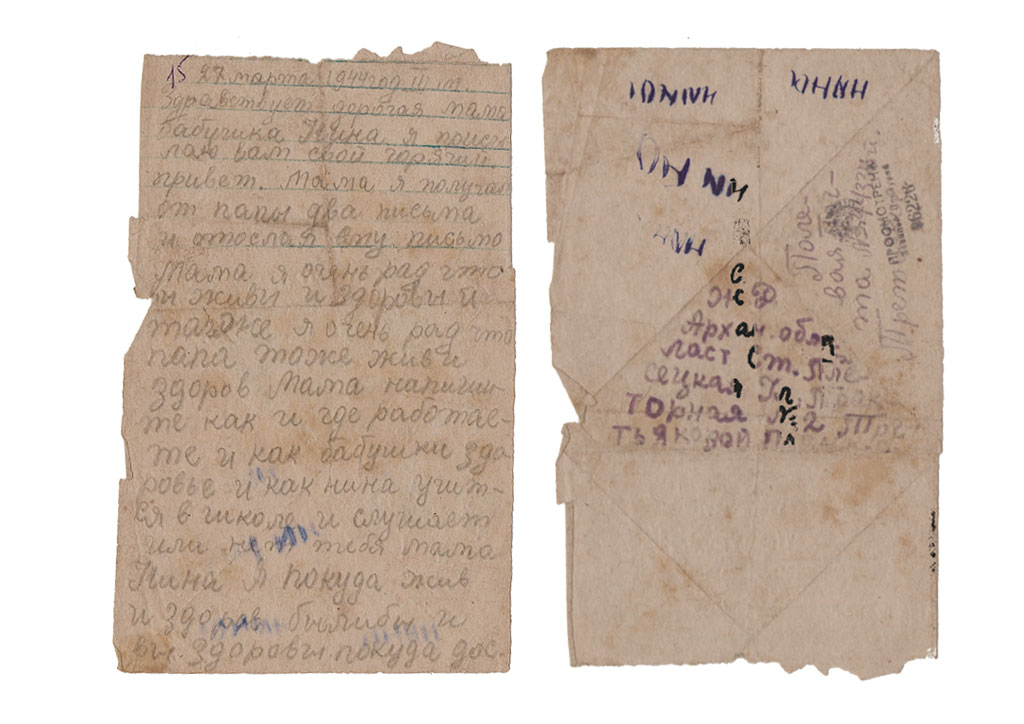 15 27 марта 1944 год.
Здравствует дорогая мама
бабушка Нина я посы
лаю вам свой горячий
привет. Мама я получал
от папы два письма
и отослал ему письмо
Мама я очень рад что
вы живы и здоровы и
также я очень рад что
папа тоже жив и
здоров Мама напиши
те как и где работае-
те и как бабушки здо
ровье и как нина учит-
ся в школе и слушает
или нет тибя мама
Нина я покуда жив
и здоров былибы и
вы здоровы покуда дос.
НИНА
Поле-
вая
ЖД
Архан. обл
ласт Ст. Пле
сецкая
торная №2 Тре
тьяковой